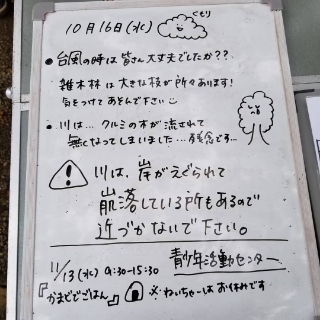 くもり
10月16日(水)
● 台風の時は皆さん大丈夫でしたか??
雑木林は大きな枝が所々あります!
気をつけてあそんで下さい
● 川は…クルミの木が流されて
無くなってしまいました…残念です…
川は、岸がえぐられて
崩落している所もあるので
近づかないで下さい。
青少年活動センター
11/13(水) 9:30-15:30
『かまどでごはん』 ※ねいちゃーはお休みです